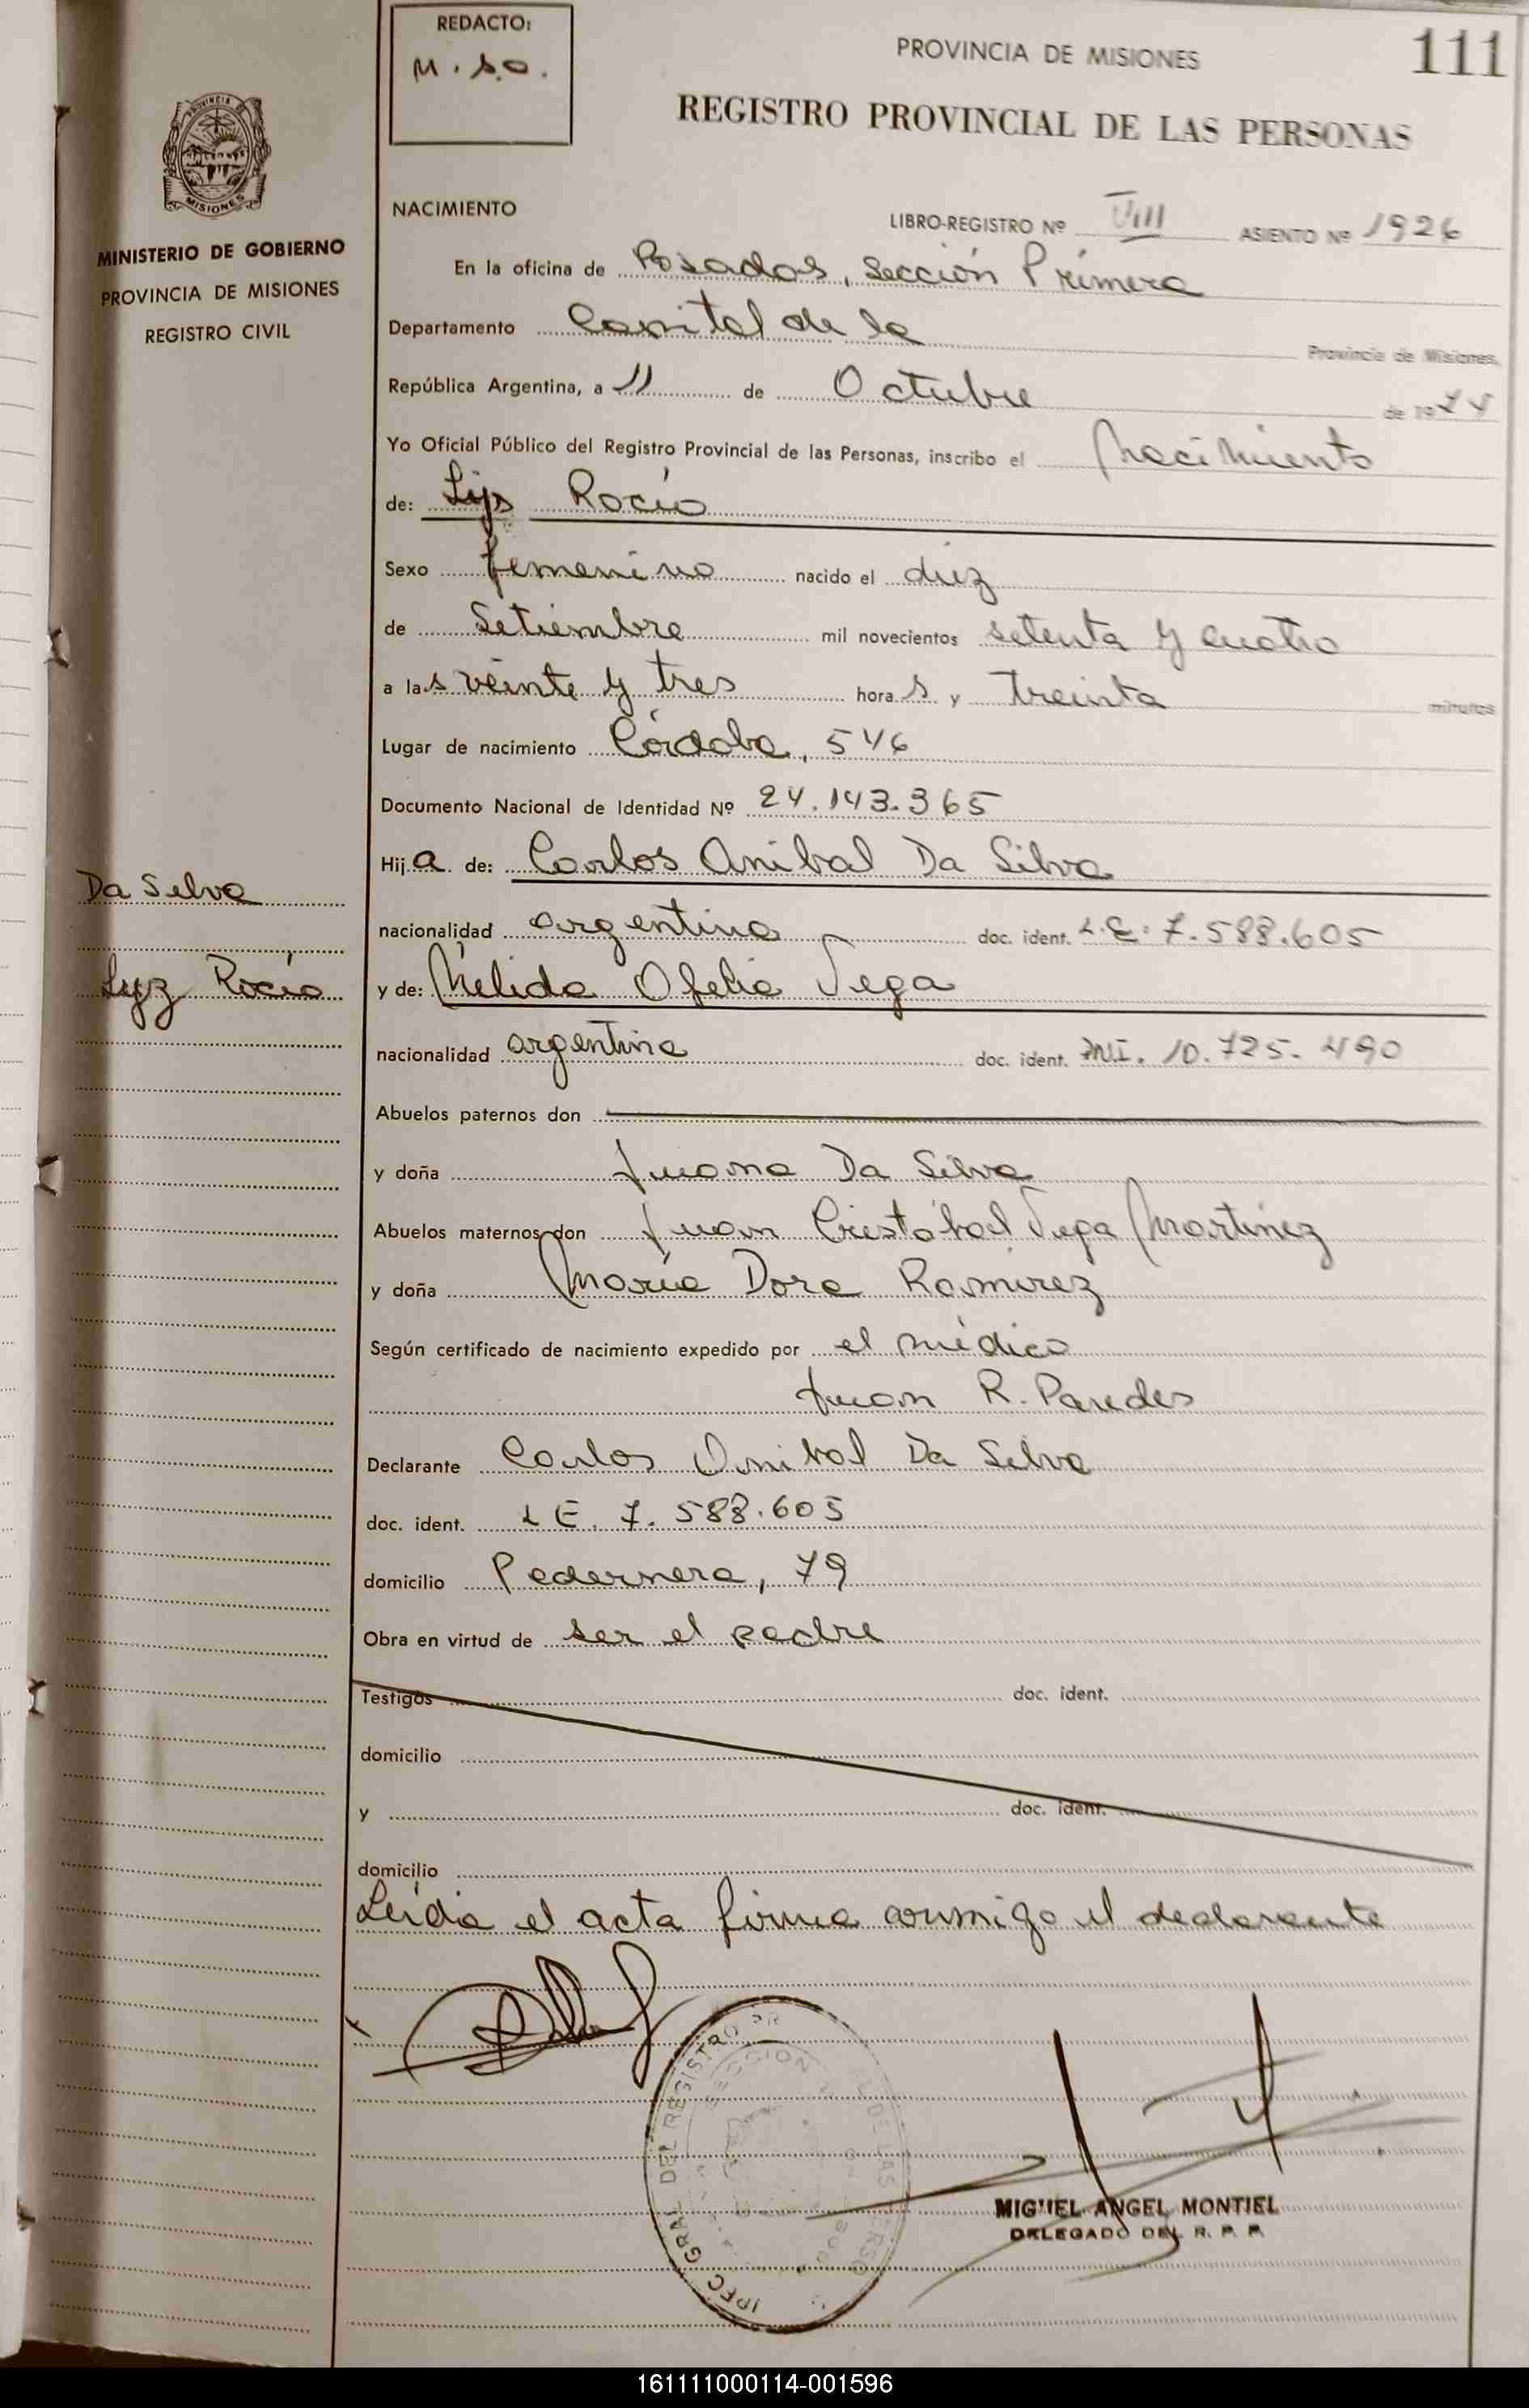 REDACTO:
M. S.O.
PROVINCIA DE MISIONES
111
REGISTRO PROVINCIAL DE LAS PERSONAS
PROVINCIA DE
MISIONES
MINISTERIO DE GOBIERNO
PROVINCIA DE MISIONES
REGISTRO CIVIL
NACIMIENTO
LIBRO-REGISTRO Nº VIII ASIENTO Nº 1926
En la oficina de Posadas, Sección Primera
Departamento Capital de la Provincia de Misiones,
República Argentina, a 11 de Octubre de 1974
Yo Oficial Público del Registro Provincial de las Personas, inscribo el Nacimiento
de: Lys Rocío
Sexo femenino nacido el diez
de Setiembre mil novecientos setenta y cuatro
a las veinte y tres horas y treinta minutos
Lugar de nacimiento Córdoba, 546
Documento Nacional de Identidad Nº 24.143.365
Hija de: Carlos Anibal Da Silva
Da Silva
nacionalidad argentina doc. ident. L.E. 7.588.605
Lyz Rocío
y de: Nélida Ofelia Vega
nacionalidad argentina doc. ident. DNI. 10.725.490
Abuelos paternos don
y doña Juana Da Silva
Abuelos maternos don Juan Cristóbal Vega Martínez
y doña María Dora Ramirez
Según certificado de nacimiento expedido por el médico
Juan R. Paredes
Declarante Carlos Anibal Da Silva
doc. ident. LE. 7.588.605
domicilio Pedernera, 79
Obra en virtud de ser el padre
Testigos doc. ident.
domicilio
y doc. ident.
domicilio
Leída el acta firma conmigo el declarante
GRAL DEL REGISTRO
SECCION
DE LAS
MIGUEL ANGEL MONTIEL
DELEGADO DEL R. P. P.
161111000114-001596